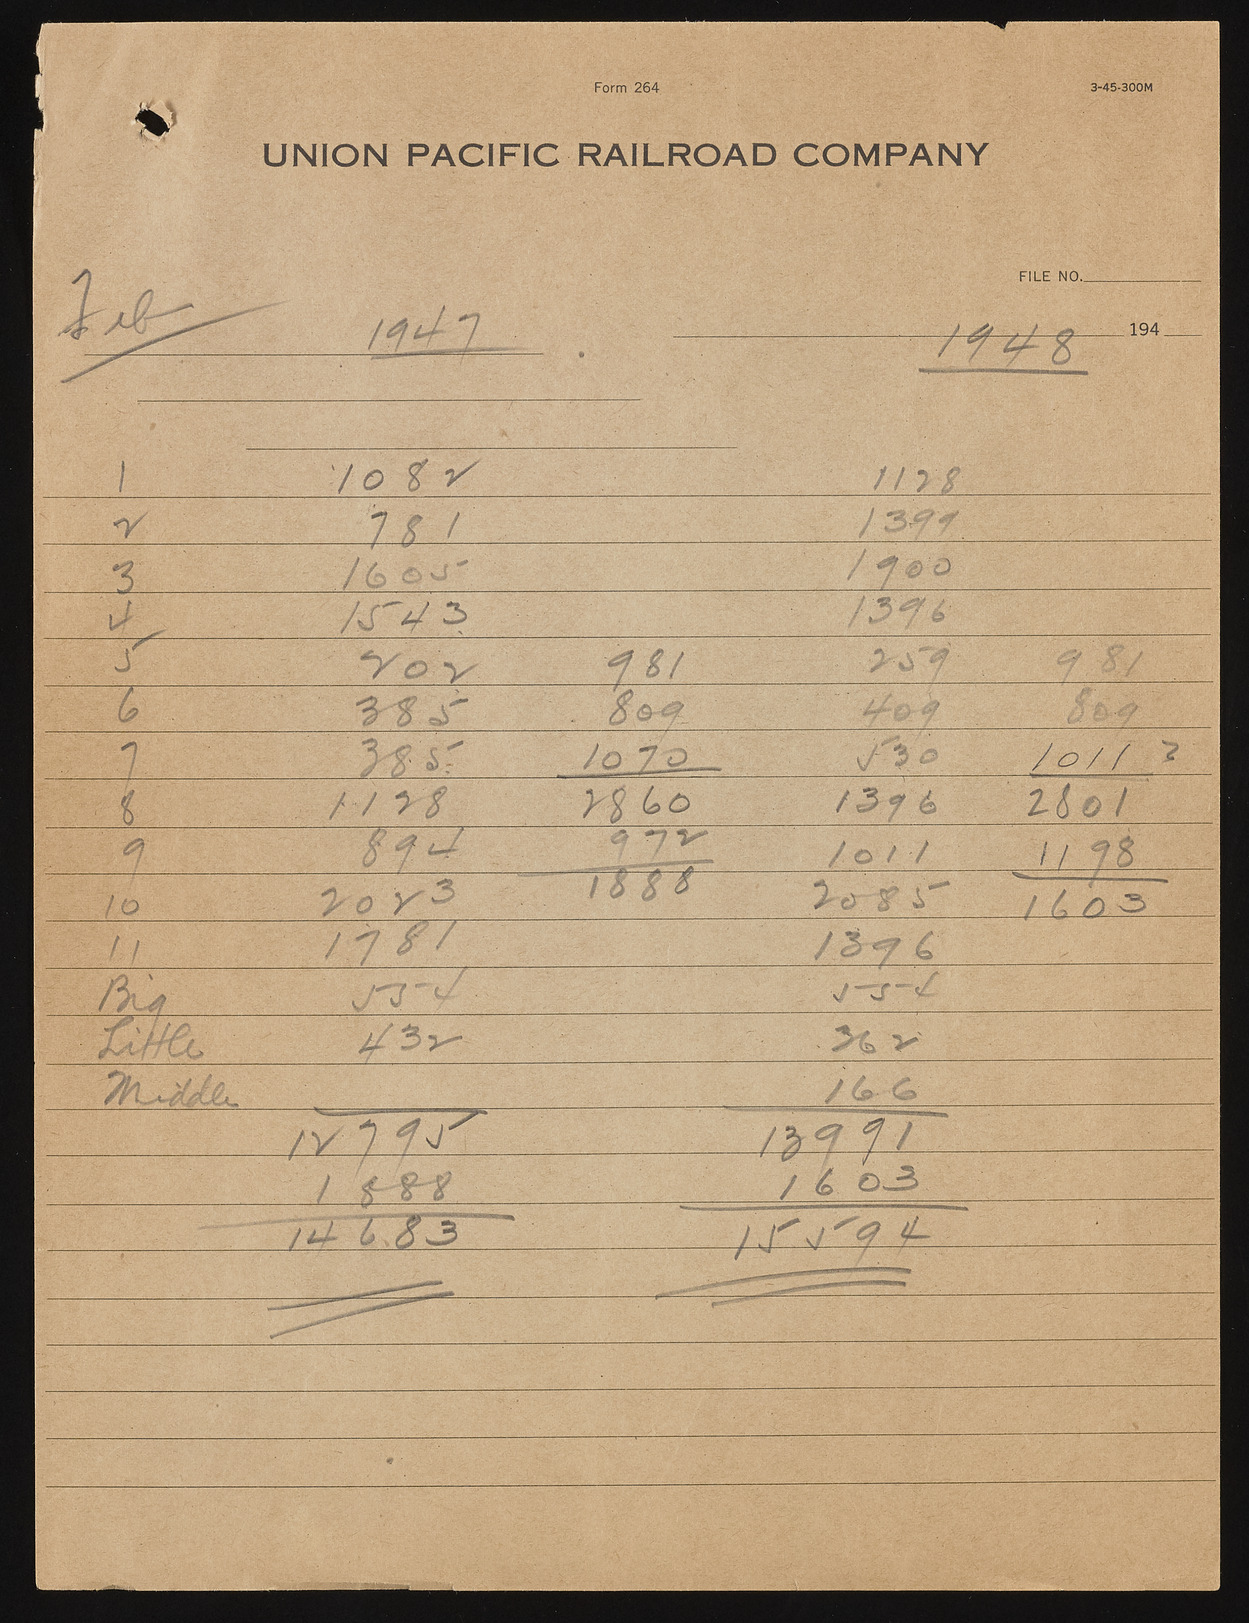 Form 264 3-45-300M
UNION PACIFIC RAILROAD COMPANY
FILE NO.
Feb 1947 1948 194
1 1082 1128
2 781 1399
3 1605 1900
4 1543 1396
5 202 981 259 981
6 385 809 409 809
7 385 1070 530 1011 ?
8 1128 2860 1396 2801
9 894 972 1011 1198
10 2023 1888 2085 1603
11 1781 1396
Big 554 554
Little 432 362
Middle 166
12795 13991
1888 1603
14683 15594